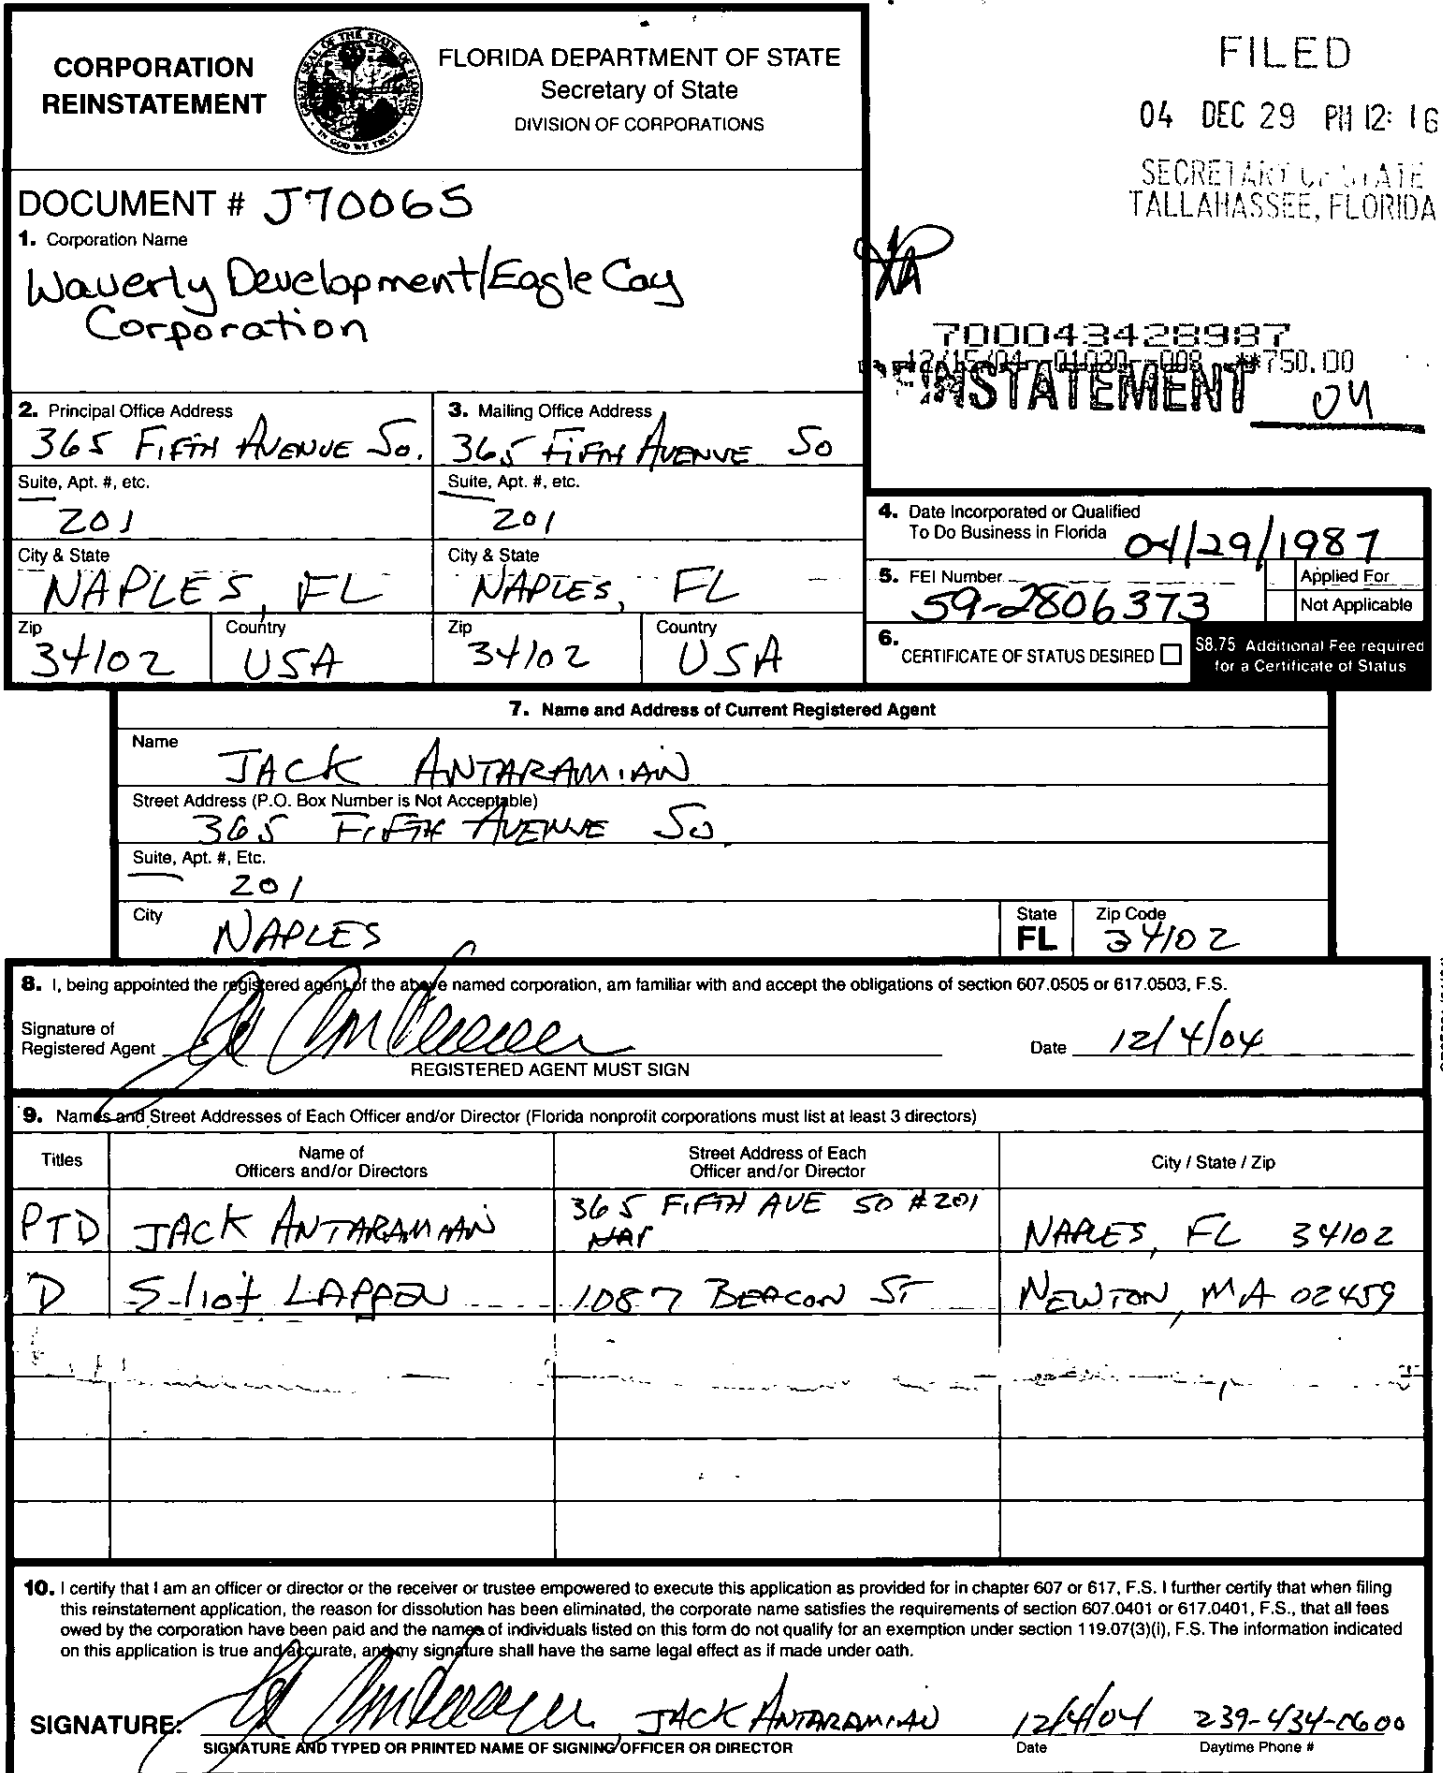 CORPORATION
REINSTATEMENT
FLORIDA DEPARTMENT OF STATE
Secretary of State
DIVISION OF CORPORATIONS
FILED
04 DEC 29 PM 12: 16
SECRETARY OF STATE
TALLAHASSEE, FLORIDA
DOCUMENT # J70065
1. Corporation Name
Waverly Development/Eagle Cay
Corporation
700043428987
12/15/04 01030 008 **750.00
REINSTATEMENT 04
2. Principal Office Address
365 FIFTH AVENUE So.
Suite, Apt. #, etc.
201
City & State
NAPLES, FL
Zip
34102
Country
USA
3. Mailing Office Address
365 FIFTH AVENUE So
Suite, Apt. #, etc.
201
City & State
NAPLES, FL
Zip
34102
Country
USA
4. Date Incorporated or Qualified
To Do Business in Florida 04/29/1987
5. FEI Number
59-2806373
Applied For
Not Applicable
6. CERTIFICATE OF STATUS DESIRED
$8.75 Additional Fee required
for a Certificate of Status
7. Name and Address of Current Registered Agent
Name
JACK ANTARAMIAN
Street Address (P.O. Box Number is Not Acceptable)
365 FIFTH AVENUE So
Suite, Apt. #, Etc.
201
City
NAPLES
State
FL
Zip Code
34102
8. I, being appointed the registered agent of the above named corporation, am familiar with and accept the obligations of section 607.0505 or 617.0503, F.S.
Signature of
Registered Agent
REGISTERED AGENT MUST SIGN
Date 12/4/04
9. Names and Street Addresses of Each Officer and/or Director (Florida nonprofit corporations must list at least 3 directors)
Titles
Name of
Officers and/or Directors
Street Address of Each
Officer and/or Director
City / State / Zip
PTD JACK ANTARAMIAN 365 FIFTH AVE SO #201 NAPLES, FL 34102
D LAPPEN 1087 BEACON ST NEWTON, MA 02459
10. I certify that I am an officer or director or the receiver or trustee empowered to execute this application as provided for in chapter 607 or 617, F.S. I further certify that when filing
this reinstatement application, the reason for dissolution has been eliminated, the corporate name satisfies the requirements of section 607.0401 or 617.0401, F.S., that all fees
owed by the corporation have been paid and the names of individuals listed on this form do not qualify for an exemption under section 119.07(3)(i), F.S. The information indicated
on this application is true and accurate, and my signature shall have the same legal effect as if made under oath.
SIGNATURE: JACK ANTARAMIAN 12/4/04 239-434-0600
SIGNATURE AND TYPED OR PRINTED NAME OF SIGNING OFFICER OR DIRECTOR
Date
Daytime Phone #